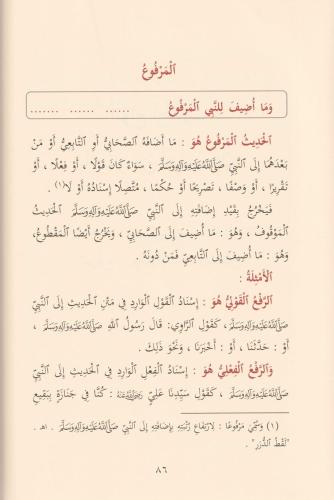 الْمَرْفُوعُ
وَمَا أُضِيفَ لِلنَّبِي الْمَرْفُوعُ ...... ...... .......
الْحَدِيثُ الْمَرْفُوعُ هُوَ : مَا أَضَافَهُ الصَّحَابِيُّ أَوِ التَّابِعِيُّ أَوْ مَنْ
بَعْدَهُمَا إِلَى النَّبِيِّ صَلَّى اللَّهُ عَلَيْهِ وَآلِهِ وَسَلَّمَ ، سَوَاءٌ كَانَ قَوْلًا ، أَوْ فِعْلًا ، أَوْ
تَقْرِيرًا ، أَوْ وَصْفًا ، تَصْرِيحًا أَوْ حُكْمًا ، مُتَّصِلًا إِسْنَادُهُ أَوْ لَا(١) .
فَيَخْرُجُ بِقَيْدِ إِضَافَتِهِ إِلَى النَّبِيِّ صَلَّى اللَّهُ عَلَيْهِ وَآلِهِ وَسَلَّمَ الْحَدِيثُ
الْمَوْقُوفُ ، وَهُوَ : مَا أُضِيفَ إِلَى الصَّحَابِيِّ ، وَيَخْرُجُ أَيْضًا الْمَقْطُوعُ،
وَهُوَ : مَا أُضِيفَ إِلَى التَّابِعِيِّ فَمَنْ دُونَهُ .
الْأَمْثِلَةُ :
الرَّفْعُ الْقَوْلِيُّ هُوَ : إِسْنَادُ الْقَوْلِ الْوَارِدِ فِي مَتْنِ الْحَدِيثِ إِلَى النَّبِيِّ
صَلَّى اللَّهُ عَلَيْهِ وَآلِهِ وَسَلَّمَ ، كَقَوْلِ الرَّاوِي: قَالَ رَسُولُ اللَّهِ صَلَّى اللَّهُ عَلَيْهِ وَآلِهِ وَسَلَّمَ ،
أَوْ : حَدَّثَنَا ، أَوْ : أَخْبَرَنَا ، وَنَحْوَ ذَلِكَ .
وَالرَّفْعُ الْفِعْلِيُّ هُوَ : إِسْنَادُ الْفِعْلِ الْوَارِدِ فِي الْحَدِيثِ إِلَى النَّبِيِّ
صَلَّى اللَّهُ عَلَيْهِ وَآلِهِ وَسَلَّمَ ، كَقَوْلِ سَيِّدِنَا عَلِيٍّ رَضِيَ اللَّهُ عَنْهُ : كُنَّا فِي جَنَازَةٍ بِبَقِيعِ
(١) وَسُمِّيَ مَرْفُوعًا : لِارْتِفَاعِ رُتْبَتِهِ بِإِضَافَتِهِ إِلَى النَّبِيِّ صَلَّى اللَّهُ عَلَيْهِ وَآلِهِ وَسَلَّمَ . اهـ .
«لَقْطُ الدُّرَرِ» .
٨٦